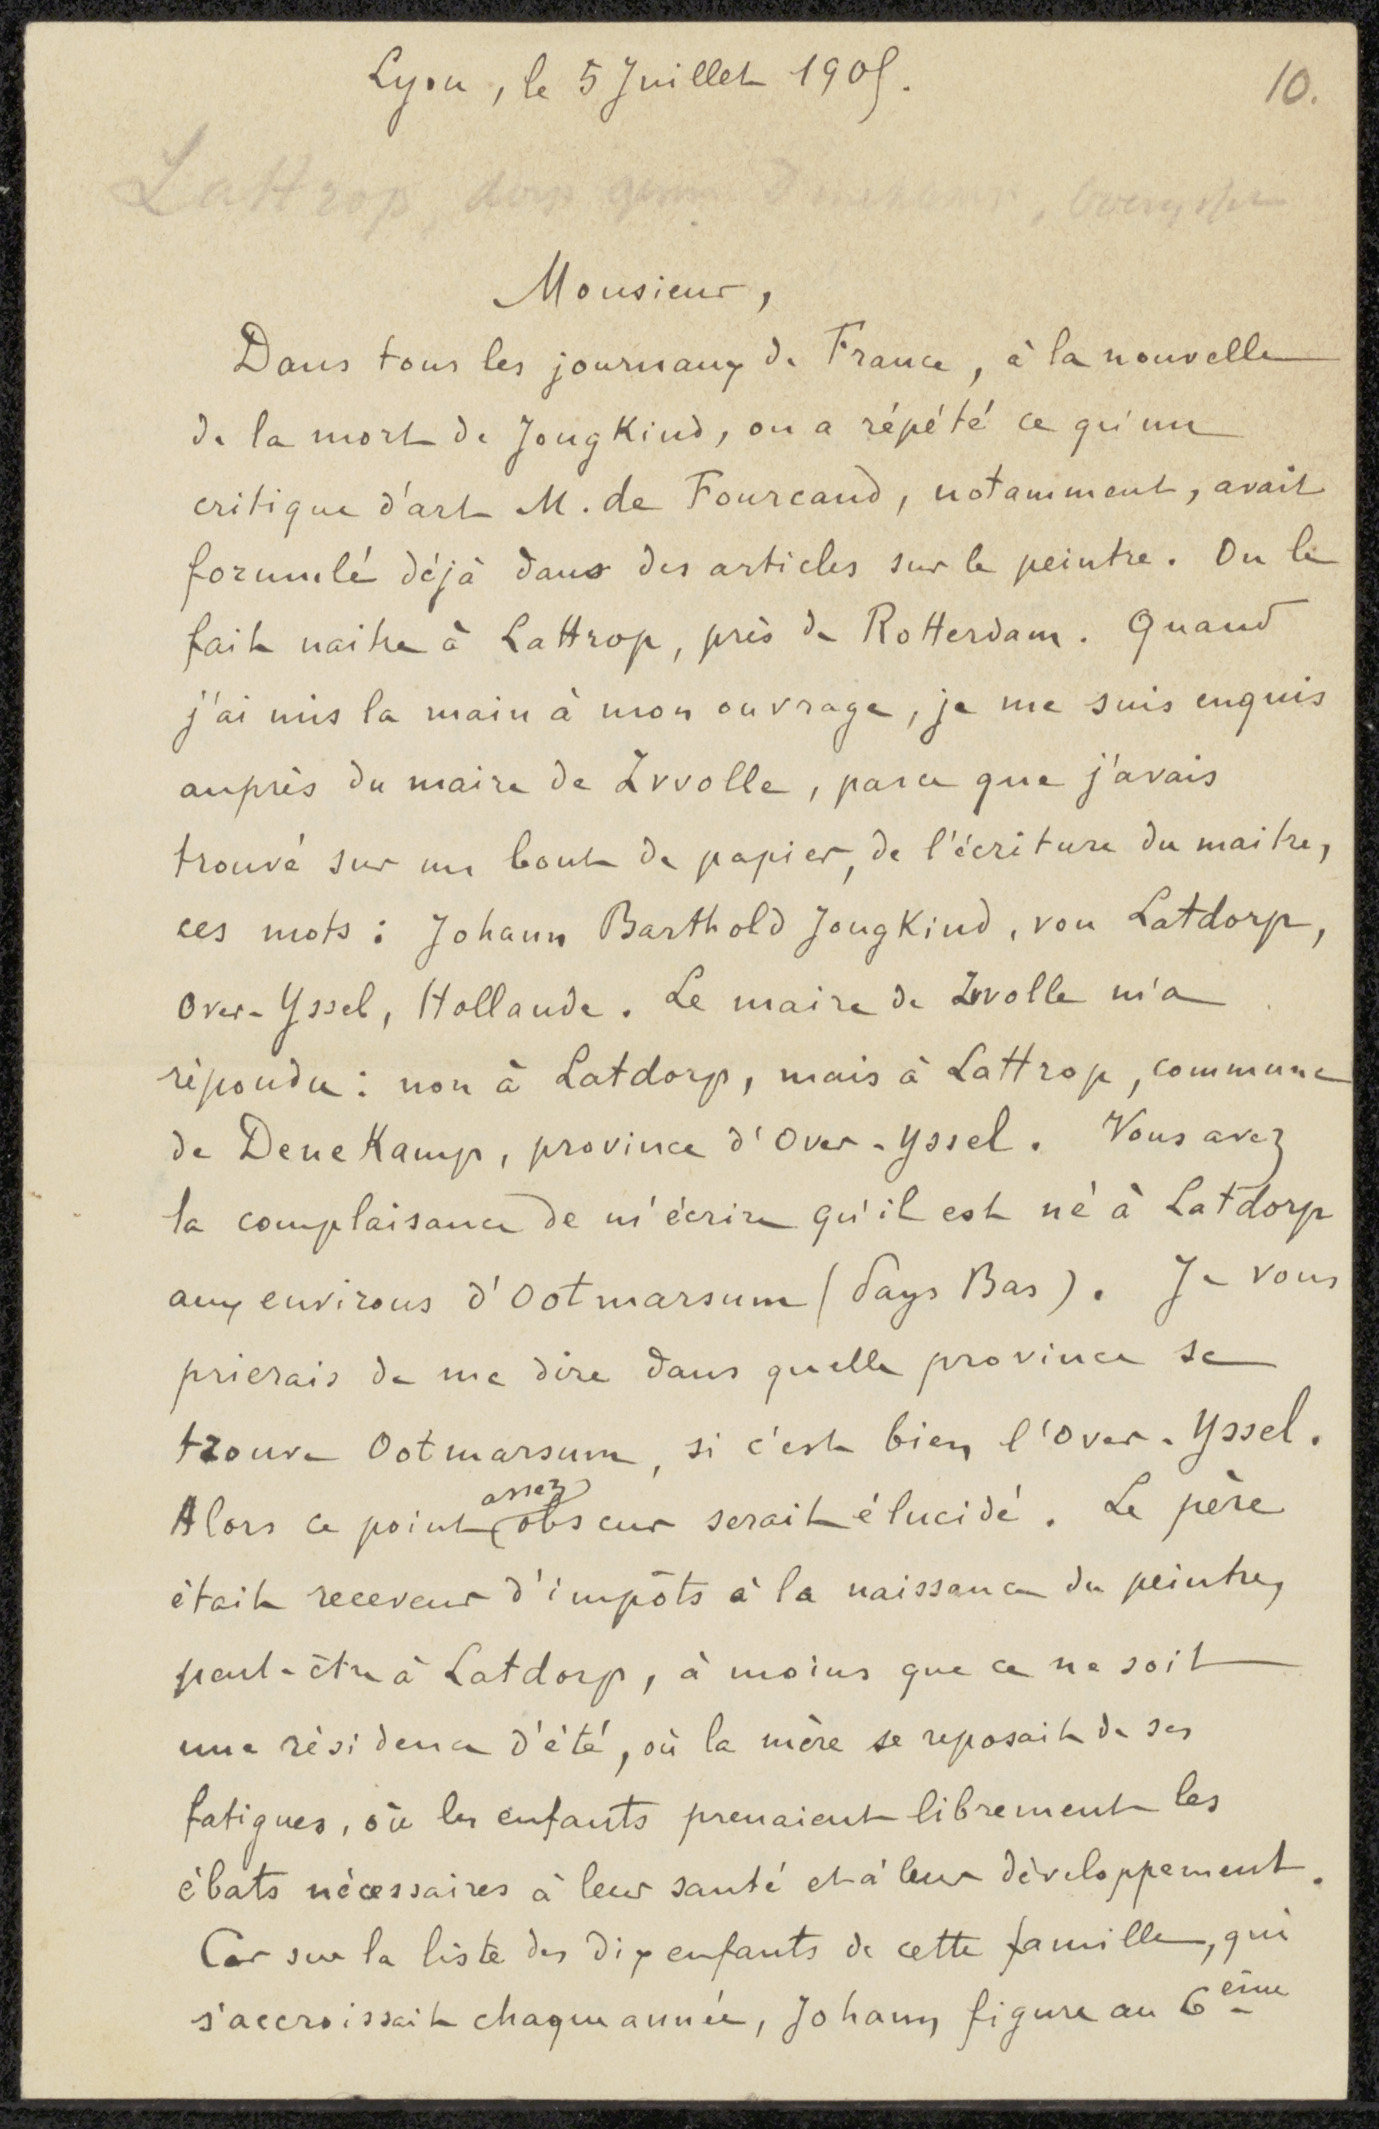 Lyon, le 5 Juillet 1905.
10.
Lattrop, dorp Overyssel
Monsieur,
Dans tous les journaux de France, à la nouvelle
de la mort de Jongkind, on a répété ce qu'un
critique d'art M. de Fourcaud, notamment, avait
formulé déjà dans des articles sur le peintre. On le
fait naitre à Lattrop, près de Rotterdam. Quand
j'ai mis la main à mon ouvrage, je me suis enquis
auprès du maire de Zwolle, parce que j'avais
trouvé sur un bout de papier, de l'écriture du maitre,
ces mots : Johann Barthold Jongkind, von Latdorp,
Over-Yssel, Hollande. Le maire de Zwolle m'a
répondu : non à Latdorp, mais à Lattrop, commune
de Denekamp, province d'Over-Yssel. Vous avez
la complaisance de m'écrire qu'il est né à Latdorp
aux environs d'Ootmarsum (Pays Bas). Je vous
prierais de me dire dans quelle province se
trouve Ootmarsum, si c'est bien l'Over-Yssel.
Alors ce point assez obscur serait élucidé. Le père
était receveur d'impôts à la naissance du peintre,
peut-être à Latdorp, à moins que ce ne soit
une résidence d'été, où la mère se reposait de ses
fatigues, où les enfants prenaient librement les
ébats nécessaires à leur santé et à leur développement.
Car sur la liste des dix enfants de cette famille, qui
s'accroissait chaque année, Johann figure au 6ème